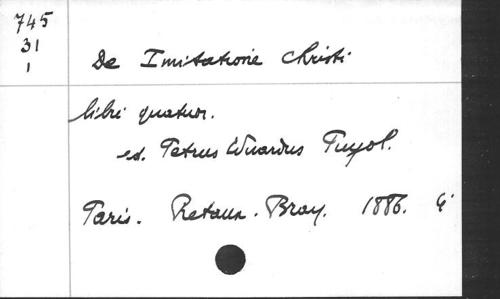 745
31
1
De Imitatione Christi
libri quatuor.
ed. Petrus Eduardus Puyol.
Paris. Retaux-Bray. 1886.